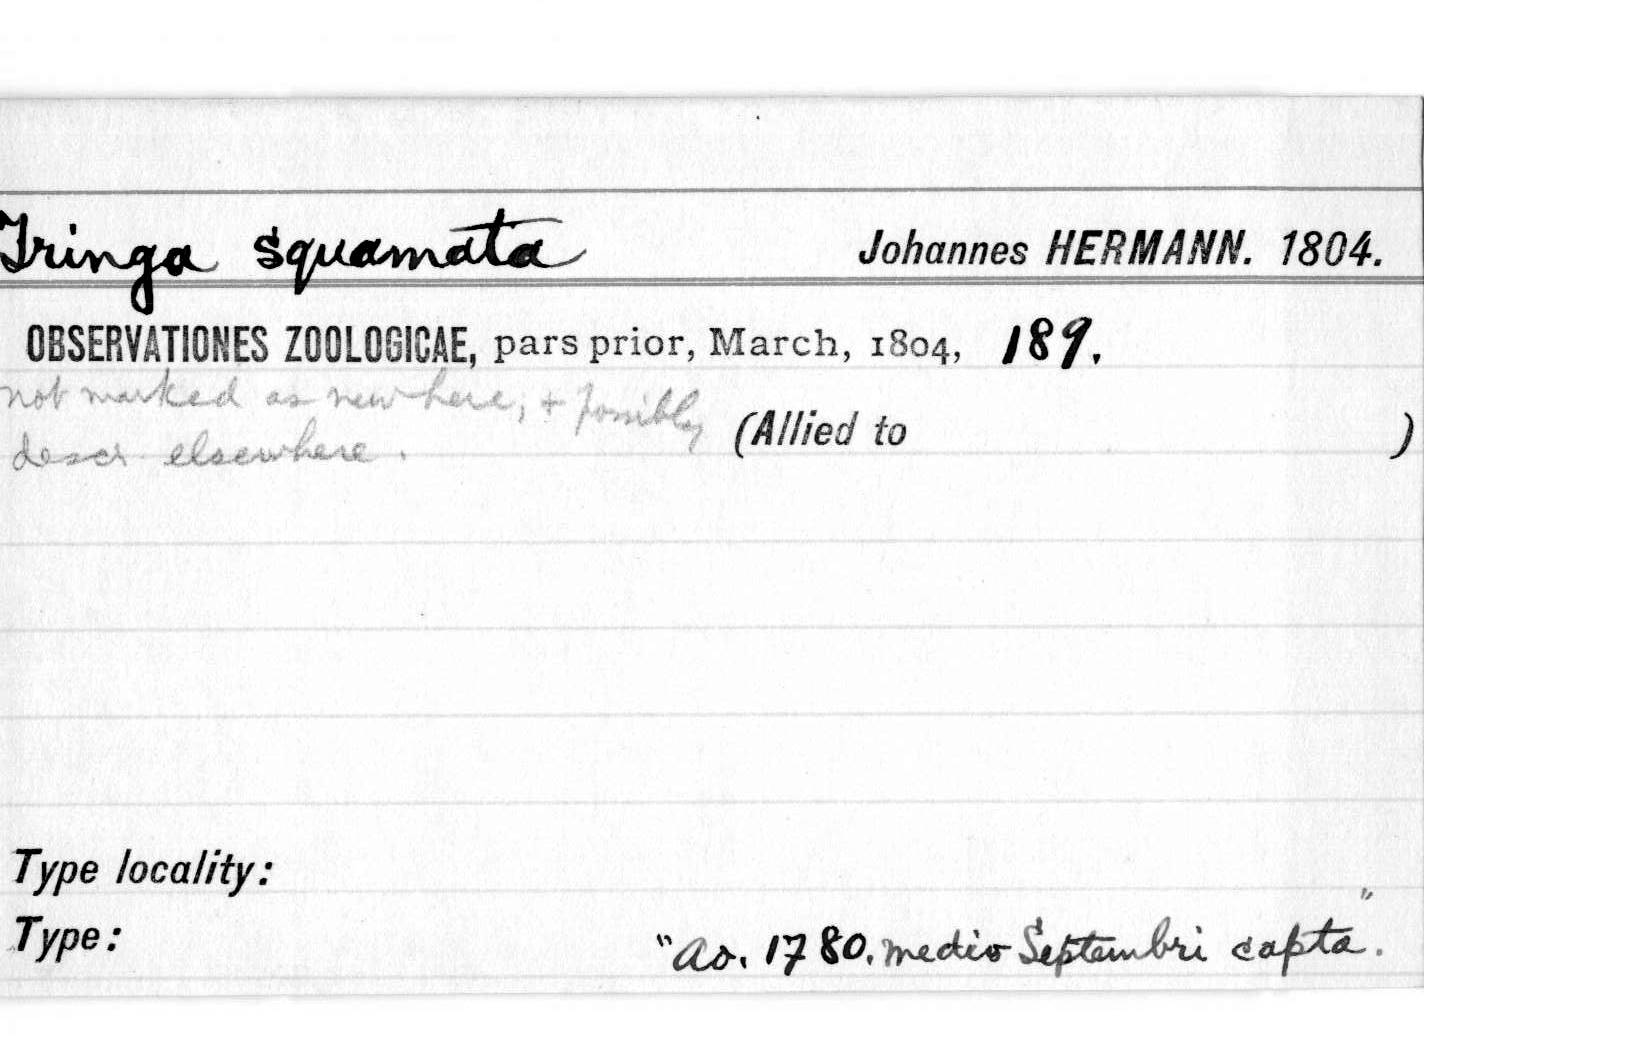 Tringa squamata Johannes HERMANN. 1804.
OBSERVATIONES ZOOLOGICAE, pars prior, March, 1804, 189.
not marked as new here, + possibly
descr elsewhere. (Allied to )
Type locality:
Type: "Ao. 1780. medio Septembri capta".